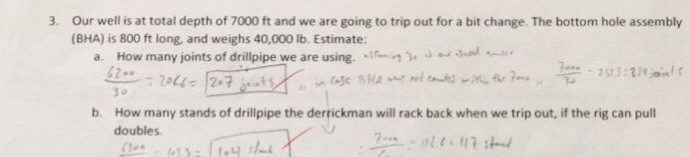 3. Our well is at total depth of 7000 ft and we are going to trip out for a bit change. The bottom hole assembly
(BHA) is 800 ft long, and weighs 40,000 lb. Estimate:
a. How many joints of drillpipe we are using.
6200 / 30 = 206.6 = 207 joints in case BHA was not counted within the 7000 7000 / 30 = 233.3 = 234 joints
b. How many stands of drillpipe the derrickman will rack back when we trip out, if the rig can pull
doubles.
104 stand = 116.6 = 117 stand